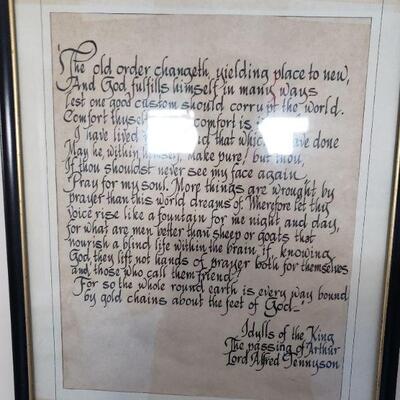 The old order changeth, yielding place to new,
And God fulfills himself in many ways
Lest one good custom should corrupt the world.
Comfort thyself comfort is
I have lived and that which done
May he, within himself, make pure! but thou,
If thou shouldst never see my face again,
Pray for my soul. More things are wrought by
prayer than this world dreams of. Wherefore let thy
voice rise like a fountain for me night and day,
for what are men better than sheep or goats that
nourish a blind life within the brain if, knowing
God, they lift not hands of prayer both for themselves
and those who call them friend!
For so the whole round earth is every way bound
by gold chains about the feet of God-
Idylls of the King
The passing of Arthur
Lord Alfred Tennyson